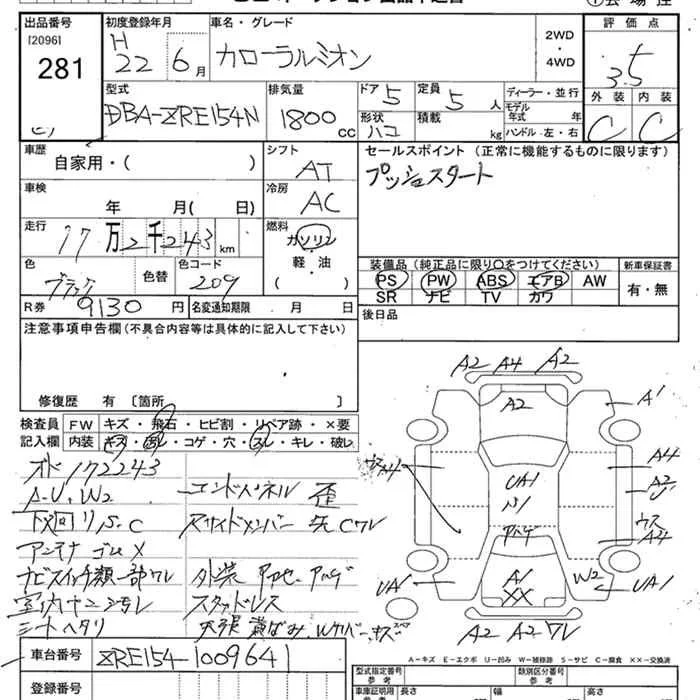 出品番号
[2096]
281
初度登録年月
H 22年 6月
車名・グレード
カローラルミオン
2WD
・
4WD
評価点
3.5
外装 内装
C C
型式
DBA-ZRE154N
排気量
1800cc
ドア 5
形状 ハコ
定員 5人
積載 kg
ディーラー・並行
モデル年式 年
ハンドル・左・右
車歴
自家用・( )
シフト
AT
車検
年 月( 日)
冷房
AC
走行
17万2千243km
燃料
ガソリン
軽・油
( )
色
ブラック
色替
色コード
209
R券 9130円
名変通知期限 月 日
セールスポイント(正常に機能するものに限ります)
プッシュスタート
装備品(純正品に限り○をつけてください)
PS PW ABS エアB AW
SR ナビ TV カワ
新車保証書
有・無
後日品
注意事項申告欄(不具合内容等は具体的に記入して下さい)
修復歴 有 〔箇所 〕
検査員記入欄
FW キズ・飛石・ヒビ割・リペア跡・×要
内装 キズ・汚レ・コゲ・穴・スレ・キレ・破レ
メーター 172243
A.U.W2
下回リS.C
アンテナ ゴム×
ナビスイッチ類一部ワレ
室内ナニヨゴレ
シートヘタリ
エンドパネル 歪
Rサイドメンバー 先 Cワレ
外装
スタッドレス
天張 黄ばみ
A2 A4 A2
A2
A1
ウスA4
A4
UA1
A2
U1
ハゲ
ウス
A4
UA1
A1
XX
W2
UA1
A2 A2ワレ
A-キズ E-エクボ U-凹み W-補修跡 S-サビ C-腐食 ××-交換済
車台番号
ZRE154-1009641
登録番号
型式指定番号
参考
類別区分番号
参考
車庫証明用
長さ
幅
高さ